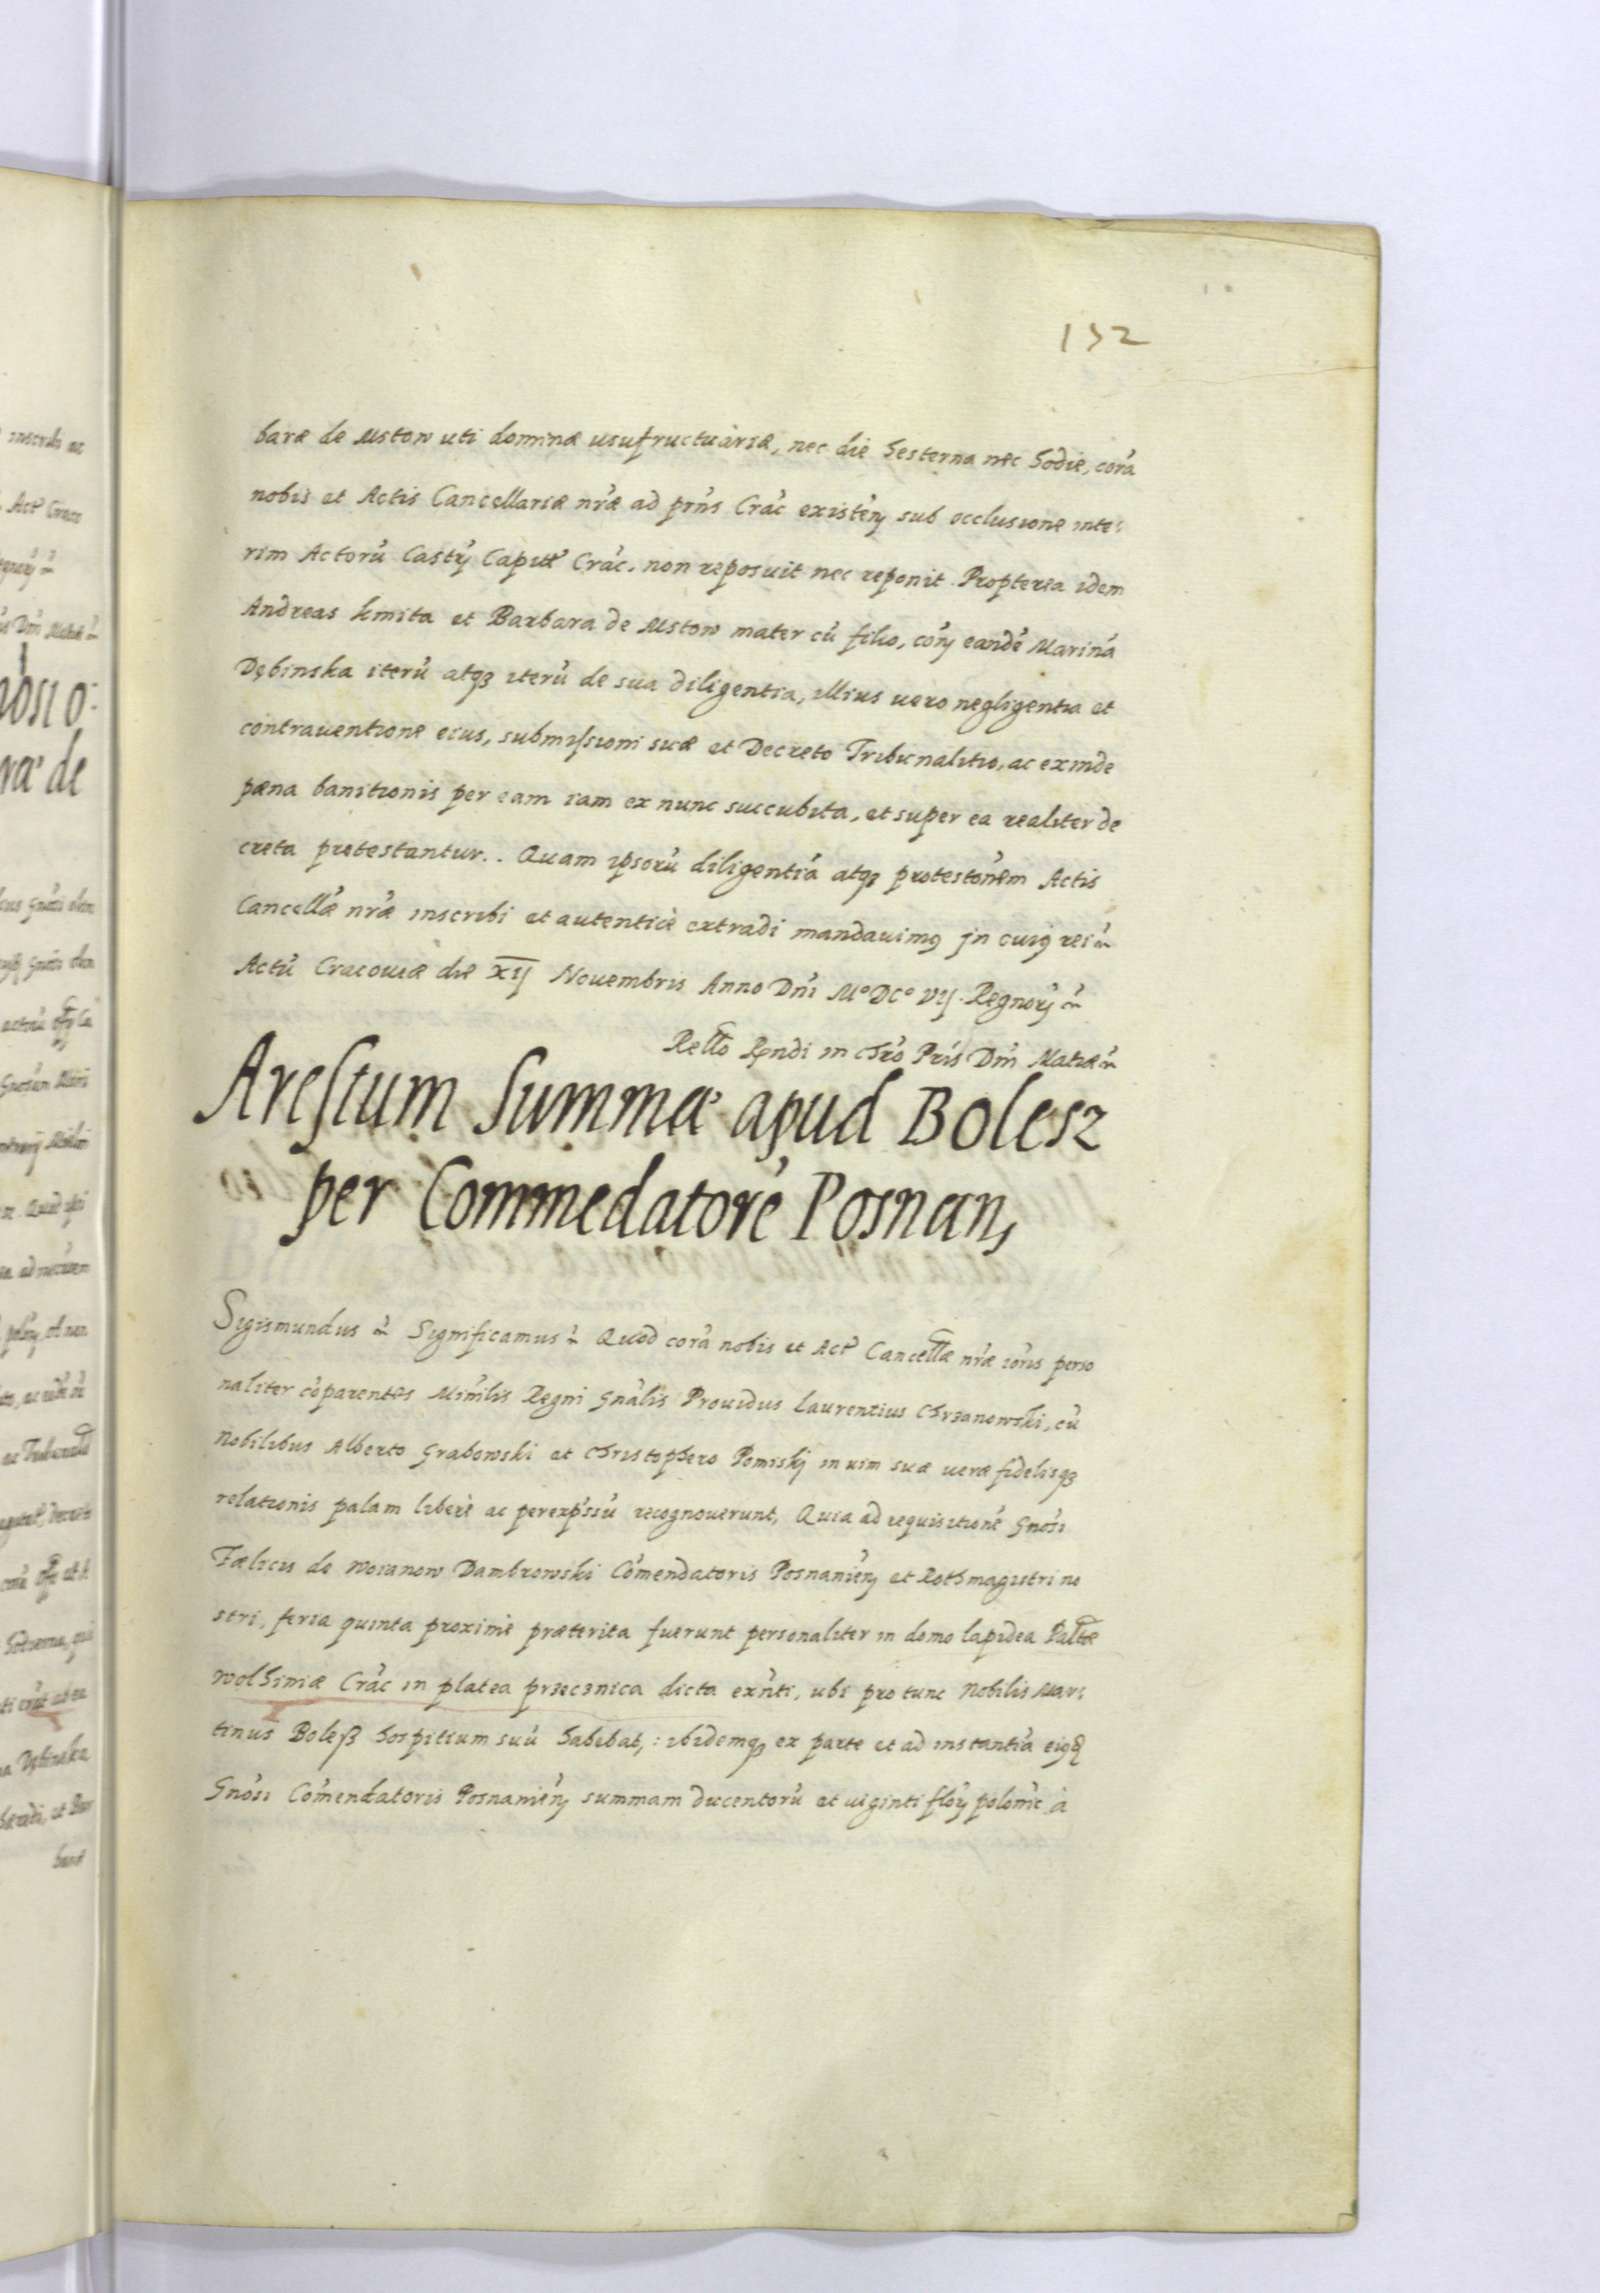 132
baræ de Mstow uti dominæ usufructuariæ, nec die hesterna nec hodie, corá
nobis et Actis Cancellariæ nrǽ ad prńs Crać existeń sub occlusione inte:
rim Actorú Castrj Capitt Crać. non reposuit nec reponit. Propterea idem
Andreas kmita et Barbara de Mstow mater cú filio, coń eandé Mariná
Dębinska iterú atq3 iterú de sua diligentia, illius vero negligentia et
contraventione eius, submissioni suæ et Decreto Tribunalitio, ac exinde
pæna banitionis per eam iam ex nunc succubita, et super ea realiter de
creta protestantur. Quam ipsorú diligentiá atq3 protestońem Actis
Cancellǽ nrǽ inscribi et autenticè extradi mandavimq jn cuiq rei
Actú Cracoviæ die XII Novembris Anno Dńi M° DC° VII. Regnorj
Rello Rndi in Chró Pris Dni Matiæ
Arestum Summæ apud Bolesz
per Commedatoré Posnan,
Sigismundus Significamus Quod corá nobis et Act Cancellæ nrǽ iońs perso
naliter cóparentes Minílis Regni Gnális Providus Laurentius Chrzanowski, cú
Nobilibus Alberto Grabowski et Christophero Pomiskj in vim suæ veræ fidelisq3
relationis palam liberè ac perexpŕssú recognoverunt, Quia ad requisitioné Gnósi
Fælicis de Woianow Dambrowski Cómendatoris Posnanień et Rothmagistri no
stri, feria quinta proximè præterita fuerunt personaliter in domo lapidea Paltæ
Wolhiniæ Crać in platea przecznica dicta exńti, ubi pro tunc Nobilis Mar:
tinus Boleß hospitium suú habebat,: ibidemq3 ex parte et ad instantiá eiqd
Gnósi Cómendatoris Posnanień summam ducentorú et viginti flóń polonić à